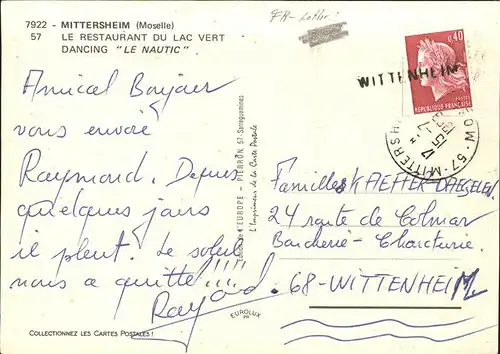 7922 - MITTERSHEIM (Moselle)
57 LE RESTAURANT DU LAC VERT
DANCING "LE NAUTIC"
Amical Bonjour
vous envoie
Raymond. Depuis
quelques jours
il pleut. Le soleil
nous a quitté!!!!
Raymond.
COLLECTIONNEZ LES CARTES POSTALES!
EUROPE - PIERRON, 57-Sarreguemines
L'Imprimeur de la Carte Postale
EUROLUX
FR-
WITTENHEIM
0,40
POSTES
REPUBLIQUE FRANÇAISE
57-MITTERSH
Familles KAEFFER-DAEGELEN
24 route de Colmar
Boucherie-Charcuterie.
68-WITTENHEIM